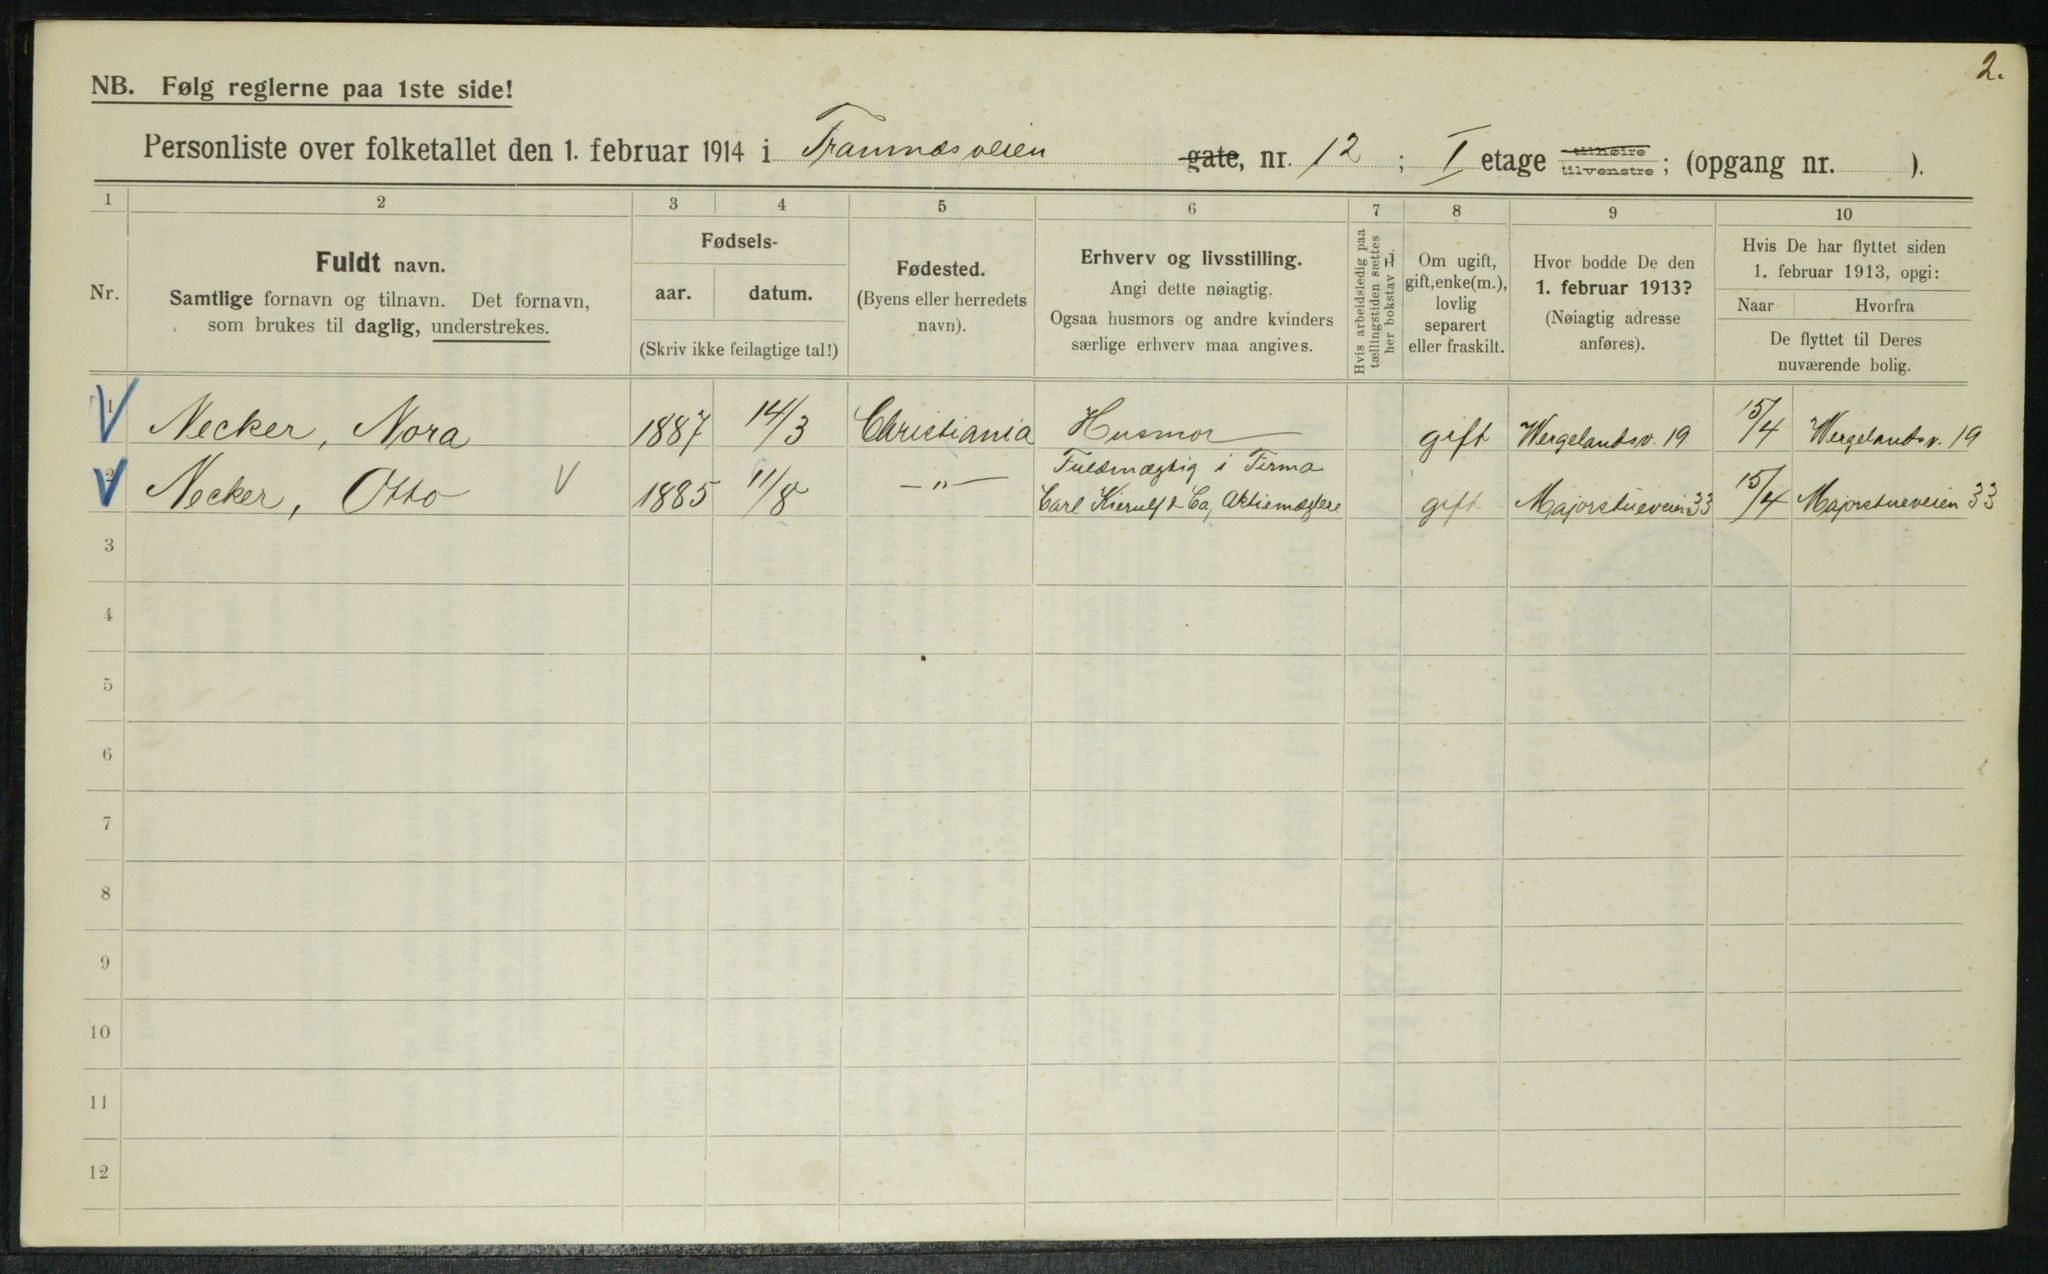 2.
NB. Følg reglerne paa 1ste side!
Personliste over folketallet den 1. februar 1914 i Framnæsveien gate, nr. 12 ; I etage tilhøire tilvenstre ; (opgang nr. ).
1 2 3 4 5 6 7 8 9 10
Nr.
Fuldt navn.
Samtlige fornavn og tilnavn. Det fornavn,
som brukes til daglig, understrekes.
Fødsels-
aar. datum.
(Skriv ikke feilagtige tal!)
Fødested.
(Byens eller herredets
navn).
Erhverv og livsstilling.
Angi dette nøiagtig.
Ogsaa husmors og andre kvinders
særlige erhverv maa angives.
Hvis arbeidsledig paa
tællingstiden sættes
her bokstav L.
Om ugift,
gift, enke(m.),
lovlig
separert
eller fraskilt.
Hvor bodde De den
1. februar 1913?
(Nøiagtig adresse
anføres).
Hvis De har flyttet siden
1. februar 1913, opgi:
Naar Hvorfra
De flyttet til Deres
nuværende bolig.
1 Necker, Nora 1887 14/3 Christiania Husmor gift Wergelandsv. 19 15/4 Wergelandsv. 19
2 Necker, Otto V 1885 11/8 —"— Fuldmægtig i Firma
Carl Kierulf & Co, Aktiemæglere gift Majorstueveien 33 15/4 Majorstueveien 33
3
4
5
6
7
8
9
10
11
12